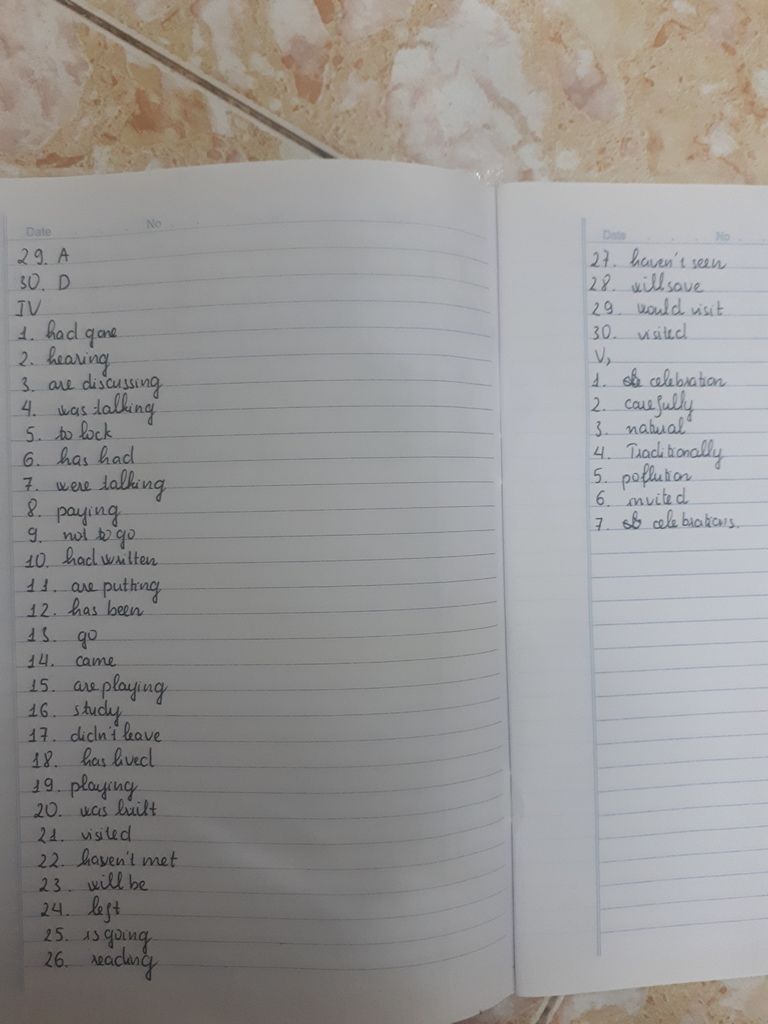 Date No
29. A
30. D
IV
1. had gone
2. hearing
3. are discussing
4. was talking
5. to lock
6. has had
7. were talking
8. paying
9. not to go
10. had written
11. are putting
12. has been
13. go
14. came
15. are playing
16. study
17. didn't leave
18. has lived
19. playing
20. was built
21. visited
22. haven't met
23. will be
24. left
25. is going
26. reading
Date No
27. haven't seen
28. will save
29. would visit
30. visited
V,
1. celebration
2. carefully
3. natural
4. Traditionally
5. pollution
6. invited
7. celebrations.